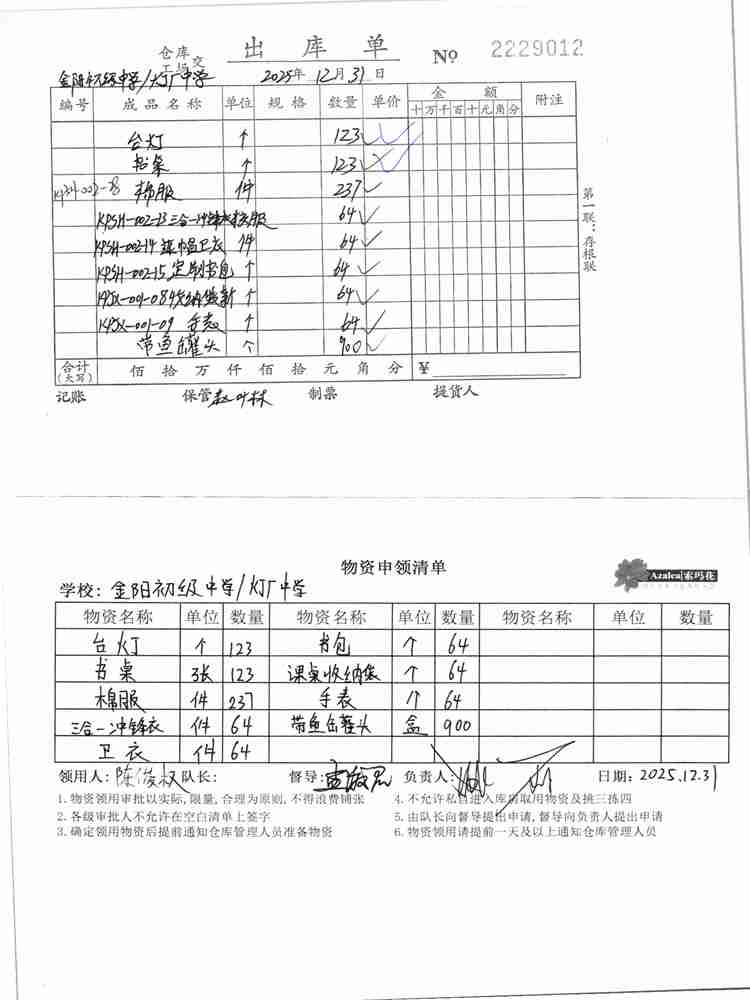 出库单 № 2229012
仓库
工场 交
金阳初级中学/灯厂中学 2025年12月31日
编号 成品名称 单位 规格 数量 单价 金额 附注
十万千百十元角分
台灯 个 123
书桌 个 123
棉服 件 237
KPSH-002-13 三合一冲锋衣 64
KPSH-002-14 卫衣 件 64
KPSH-002-15 定制书包 个 64
个 64
KPJX-001-09 手表 个 64
带鱼罐头 个 900
第一联:存根联
合计(大写) 佰拾万仟佰拾元角分 ¥
记账 保管 制票 提货人
物资申领清单
Azalea 索玛花
学校: 金阳初级中学/灯厂中学
物资名称 单位 数量 物资名称 单位 数量 物资名称 单位 数量
台灯 个 123 书包 个 64
书桌 张 123 课桌收纳袋 个 64
棉服 件 237 手表 个 64
三合一冲锋衣 件 64 带鱼罐头 盒 900
卫衣 件 64
领用人: 陈俊权 队长: 督导: 负责人: 日期: 2025.12.31
1.物资领用审批以实际,限量,合理为原则,不得浪费铺张 4.不允许私自进入库房取用物资及挑三拣四
2.各级审批人不允许在空白清单上签字 5.由队长向督导提出申请,督导向负责人提出申请
3.确定领用物资后提前通知仓库管理人员准备物资 6.物资领用请提前一天及以上通知仓库管理人员